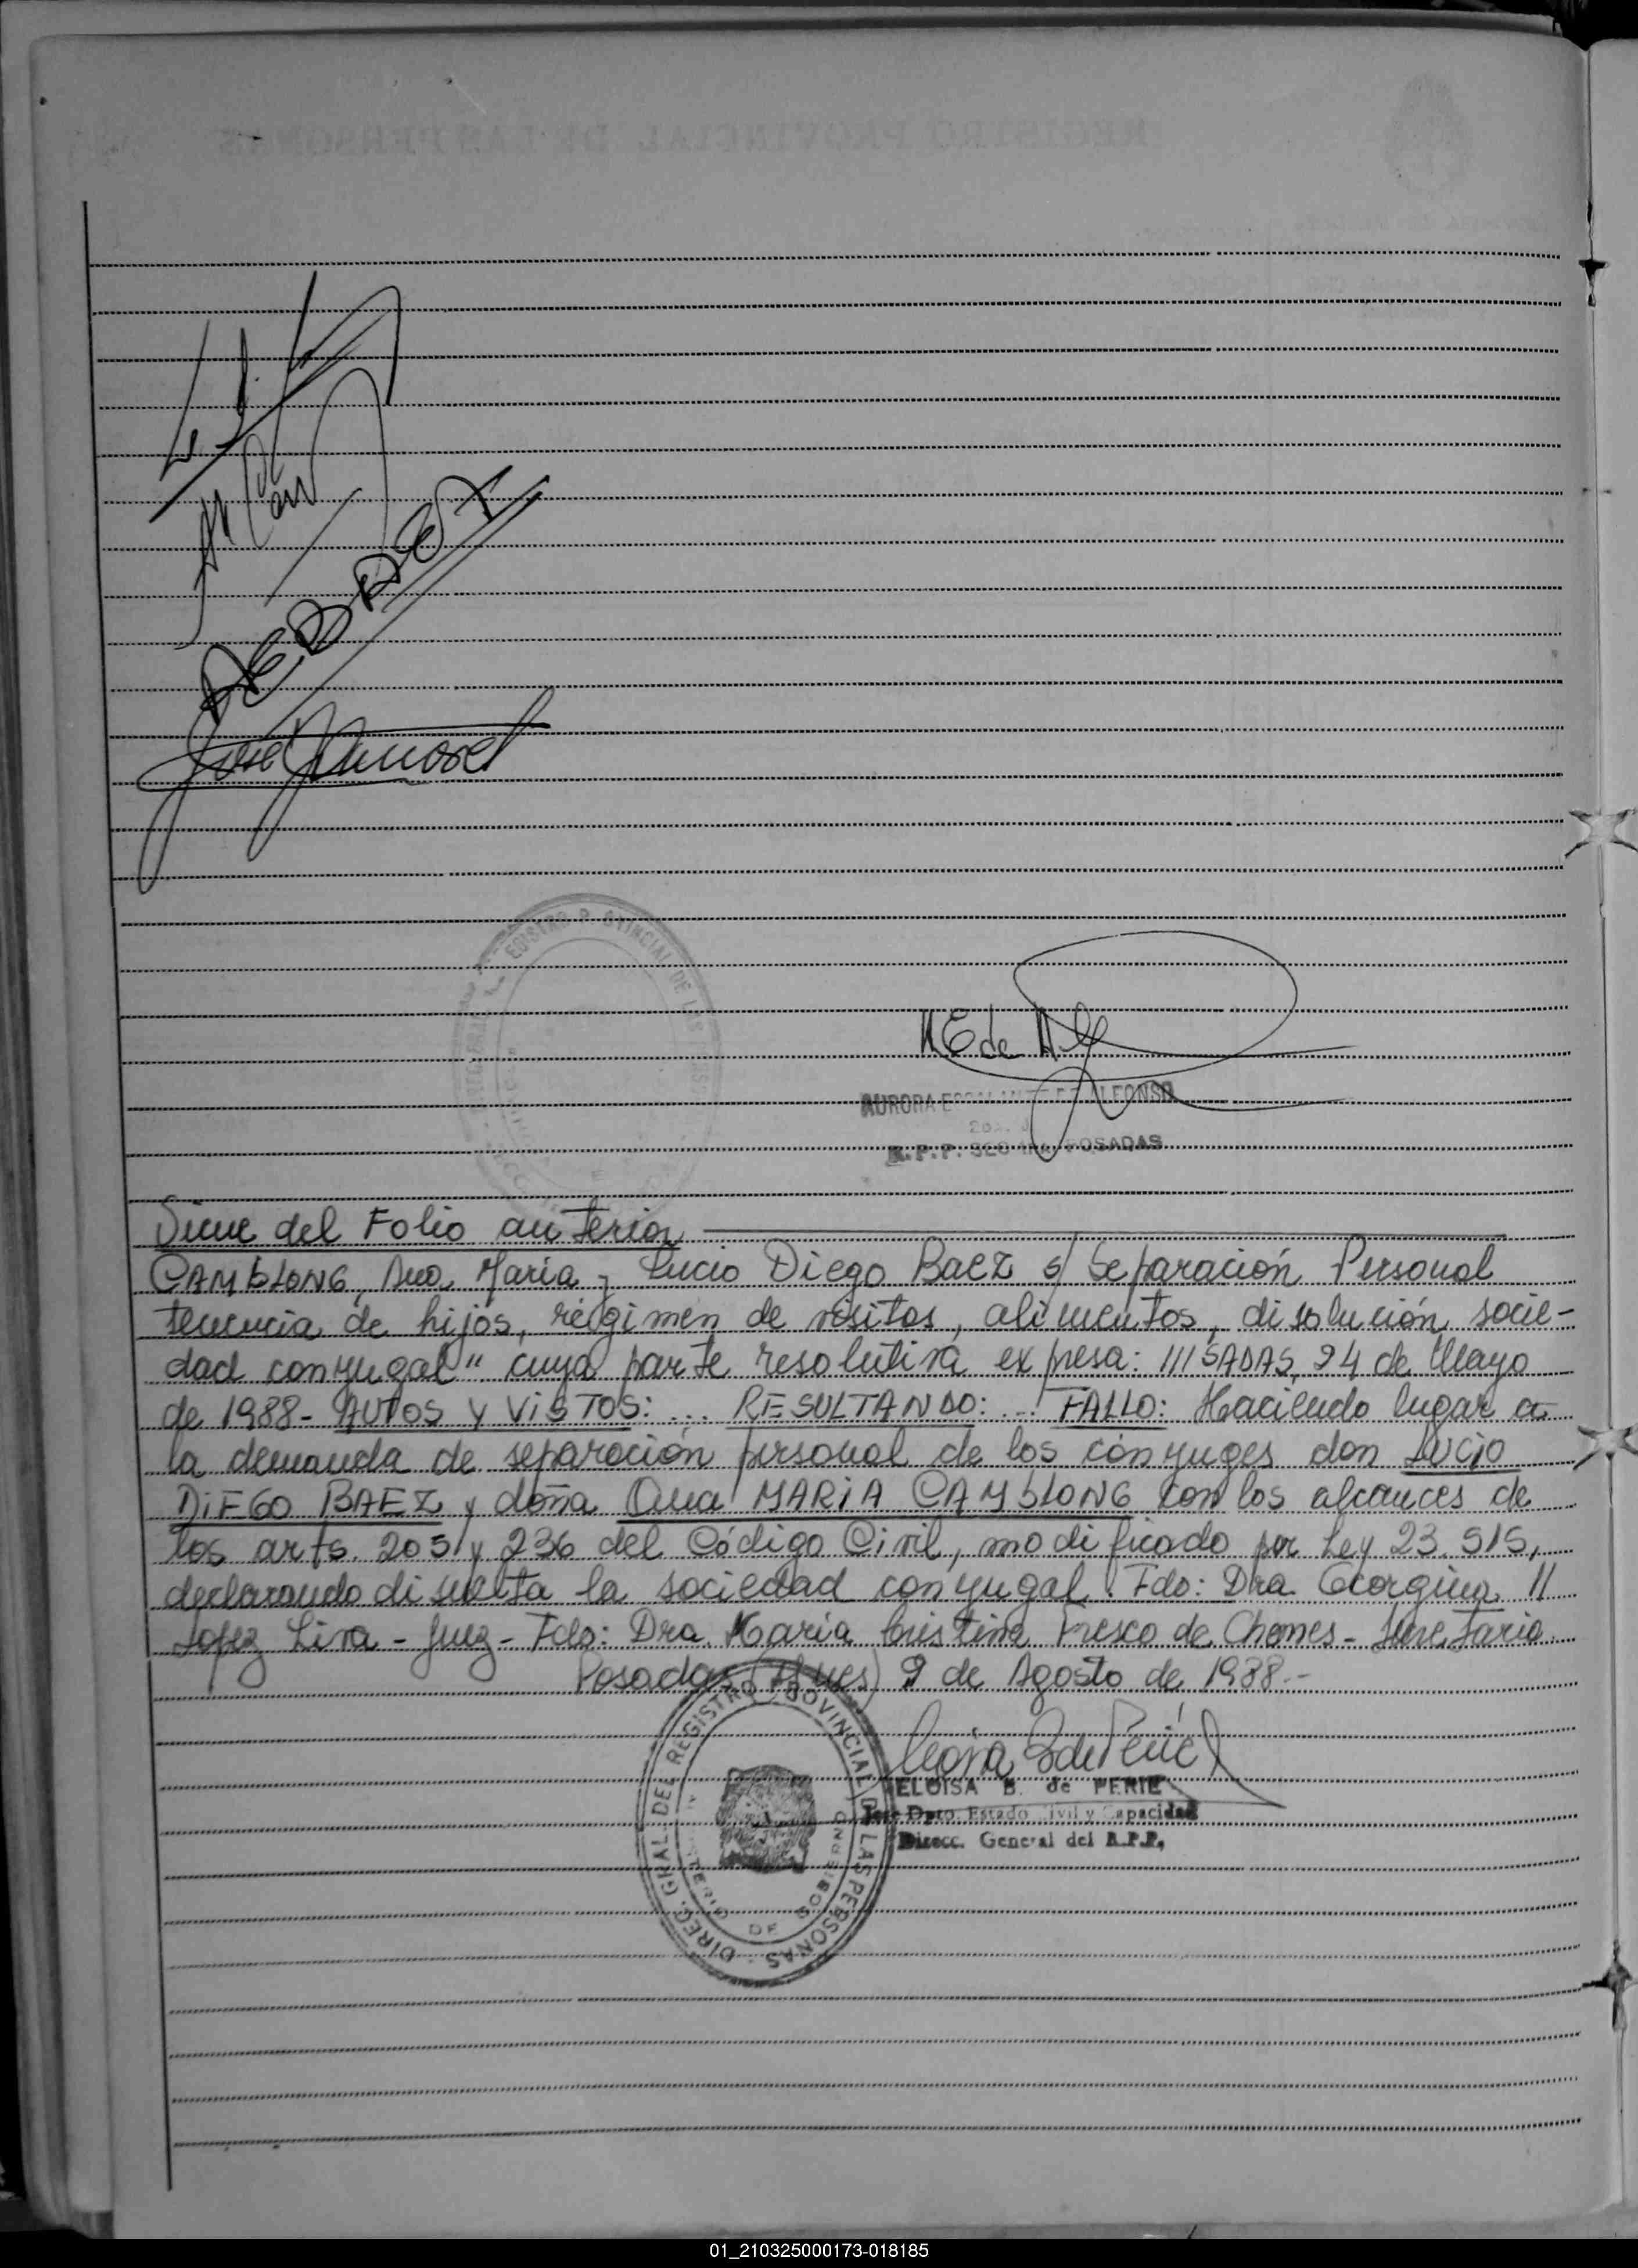 DE BAEZ
REGISTRO PROVINCIAL DE LAS
AURORA ALFONSO
R.P.P. POSADAS
Viene del Folio anterior
CAMBLONG, Ana María y Lucio Diego Baez s/ Separación Personal
tenencia de hijos, régimen de visitas, alimentos, disolución socie-
dad conyugal" cuya parte resolutiva expresa: ///SADAS, 24 de Mayo
de 1988- AUTOS Y VISTOS: ... RESULTANDO: ... FALLO: Haciendo lugar a
la demanda de separación personal de los cónyuges don LUCIO
DIEGO BAEZ y doña Ana MARIA CAMBLONG con los alcances de
los arts. 205 y 236 del Código Civil, modificado por Ley 23.515,
declarando disuelta la sociedad conyugal. Fdo: Dra. Georgina //
Lopez Liva - Juez - Fdo: Dra. María Cristina Fresco de Chemes - Secretaria.
Posadas (Mnes) 9 de Agosto de 1988.-
ELOISA B. de PERIE
Jefe Dpto. Estado Civil y Capacidad
Direcc. General del R.P.P.
DIREC. GRAL. DEL REGISTRO PROVINCIAL DE LAS PERSONAS
MINISTERIO DE GOBIERNO
01_210325000173-018185